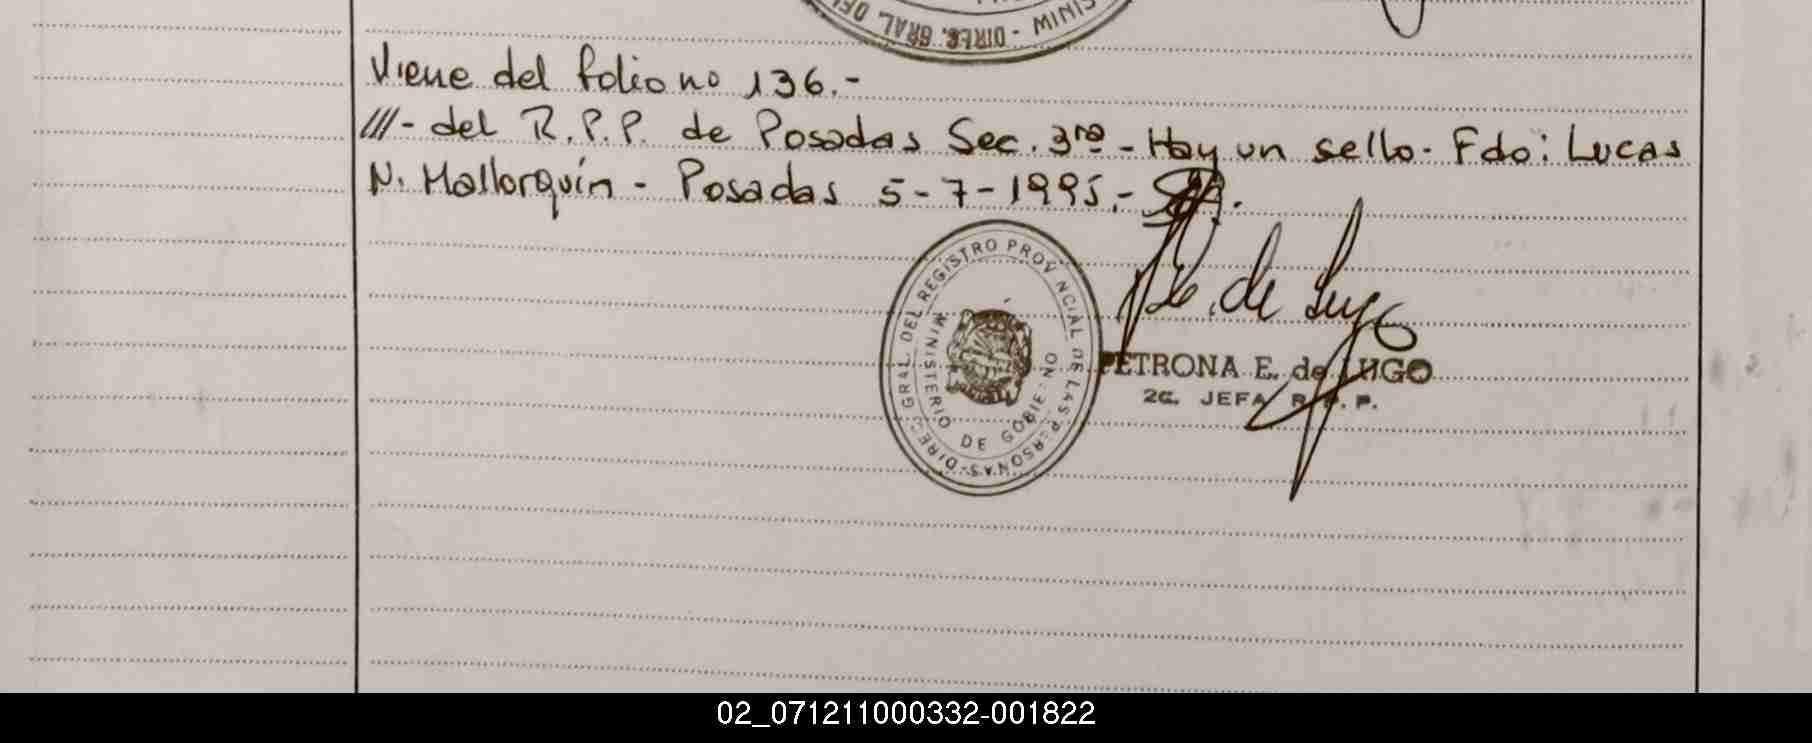 DIREG. GRAL. DEL
MINIS
Viene del folio nº 136.-
///- del R.P.P. de Posadas Sec. 3ra - Hay un sello. Fdo: Lucas
N. Mallorquín - Posadas 5-7-1995.-
DIREC. GRAL. DEL REGISTRO PROVINCIAL DE LAS PERSONAS-
MINISTERIO DE GOBIERNO
de Lugo
PETRONA E. de LUGO
JEFA R.P.P.
02_071211000332-001822